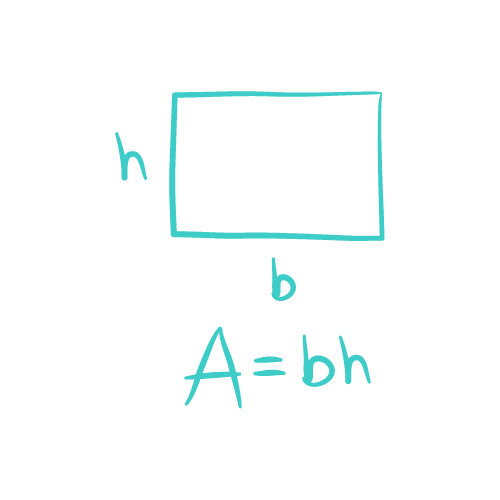 h
b
A=bh